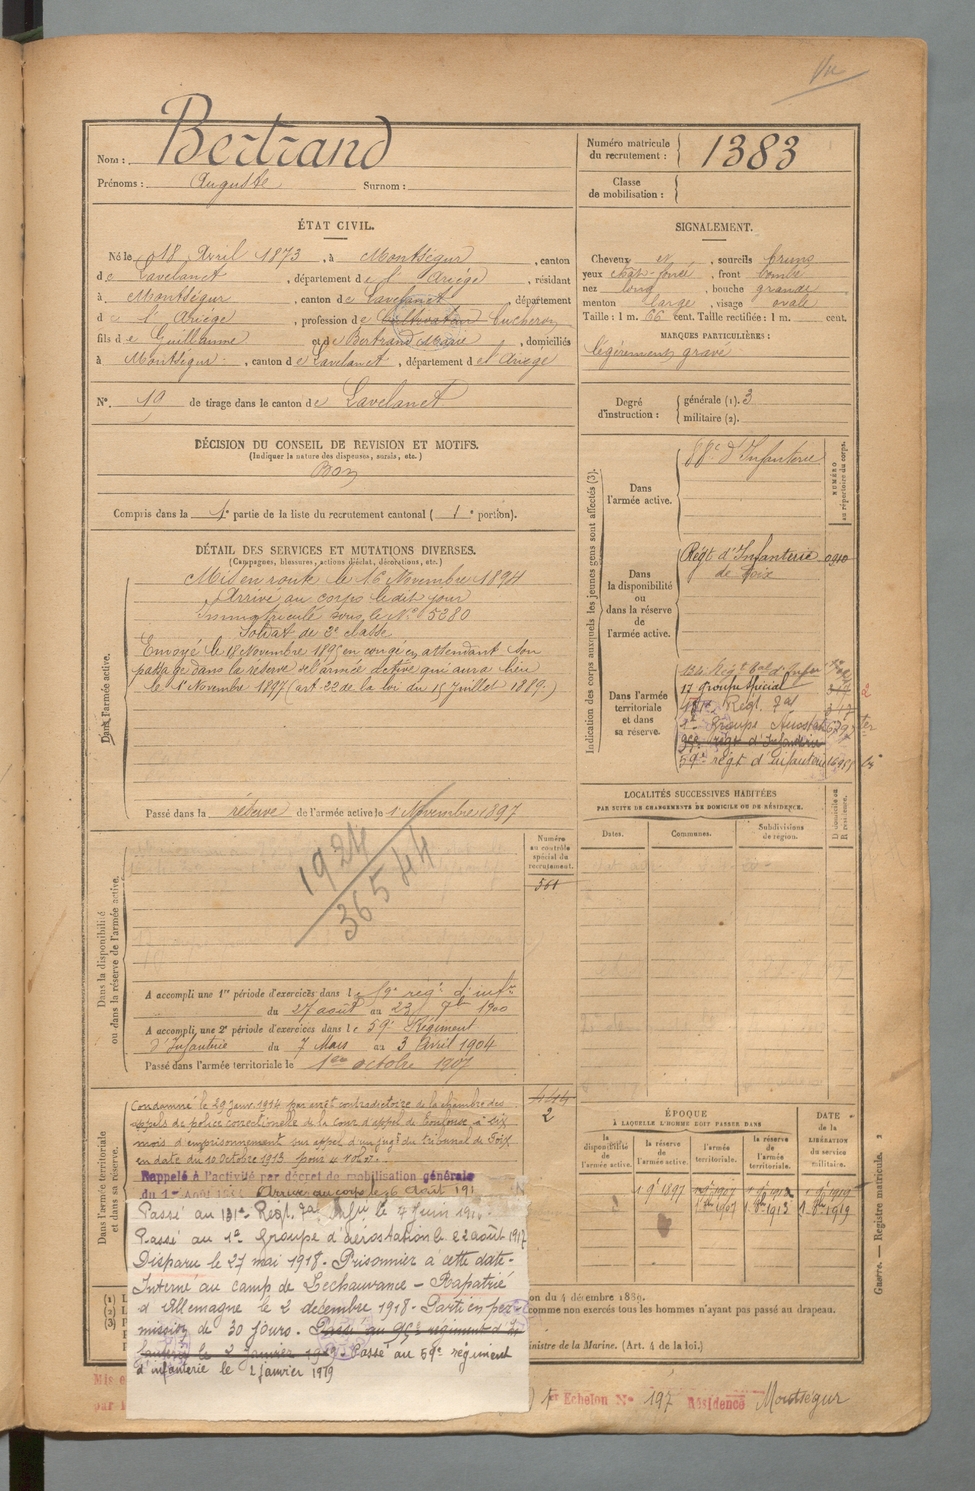 Vu
Nom : Bertrand
Prénoms : Auguste Surnom :
Numéro matricule du recrutement : 1383
Classe de mobilisation :
ÉTAT CIVIL.
Né le 18 Avril 1873, à Montségur, canton
de Lavelanet, département de l'Ariège, résidant
à Montségur, canton de Lavelanet, département
de l'Ariège, profession de Cultivateur Bucheron
fils de Guillaume et de Bertrand Marie, domiciliés
à Montségur, canton de Lavelanet, département de l'Ariège
N° 19 de tirage dans le canton de Lavelanet
SIGNALEMENT.
Cheveux et, sourcils bruns
yeux chât-foncé, front bombé
nez long, bouche grande
menton large, visage ovale
Taille : 1 m. 66 cent. Taille rectifiée : 1 m. cent.
MARQUES PARTICULIÈRES :
légèrement gravé
Degré d'instruction : générale (1). 3
militaire (2).
DÉCISION DU CONSEIL DE REVISION ET MOTIFS.
(Indiquer la nature des dispenses, sursis, etc.)
Bon
Compris dans la 1e partie de la liste du recrutement cantonal ( 1e portion).
DÉTAIL DES SERVICES ET MUTATIONS DIVERSES.
(Campagnes, blessures, actions d'éclat, décorations, etc.)
Dans l'armée active.
Mis en route le 16 Novembre 1894
Arrivé au corps le dit jour
Immatriculé sous le N° 5280
Soldat de 2e classe
Envoyé le 18 Novembre 1895 en congé en attendant son
passage dans la réserve de l'armée active qui aura lieu
le 1r Novembre 1897 (art 22 de la loi du 15 Juillet 1889.)
Passé dans la réserve de l'armée active le 1 Novembre 1897
Indication des corps auxquels les jeunes gens sont affectés (3).
NUMÉRO au répertoire du corps.
Dans l'armée active.
88e d'Infanterie
Dans la disponibilité ou dans la réserve de l'armée active.
Régt d'Infanterie 0910
de Foix
Dans l'armée territoriale et dans sa réserve.
134 Régt tal d'Infrie
17 Groupe Spécial
131e Régt. Tal
1er Groupe Aérostat
95e régt d'Infanterie
59e régt d'Infanterie
LOCALITÉS SUCCESSIVES HABITÉES
PAR SUITE DE CHANGEMENTS DE DOMICILE OU DE RÉSIDENCE.
Dates. Communes. Subdivisions de région. D. domicile ou R. résidence.
Dans la disponibilité ou dans la réserve de l'armée active.
Numéro au contrôle spécial du recrutement.
561
1924
36544
A accompli une 1re période d'exercices dans le 59e régt d'inftie
du 27 août au 23 7bre 1900
A accompli une 2e période d'exercices dans le 59e Régiment
d'Infanterie du 7 Mars au 3 Avril 1904
Passé dans l'armée territoriale le 1er octobre 1907
Dans l'armée territoriale et dans sa réserve.
2
Condamné le 29 janv. 1914 par arrêt contradictoire de la chambre des
appels de police correctionelle de la cour d'appel de Toulouse à six
mois d'emprisonnement sur appel d'un jugt du tribunal de Foix
en date du 10 Octobre 1913 pour
Rappelé à l'activité par décret de mobilisation générale
du 1er Août 191 Arrivé au corps le 6 Août 191
Passé au 131e Régt. Tal Infie le 7 Juin 191
Passé au 1er Groupe d'aérostation le 22 août 1917
Disparu le 27 mai 1918. Prisonnier à cette date.
Interné au camp de Lechauvance - Rapatrié
d'Allemagne le 2 décembre 1918. Parti en per-
mission de 30 jours. Passé au 95e régiment d'In
fanterie le 2 Janvier 1919. Passé au 59e régiment
d'infanterie le 2 janvier 1919
ÉPOQUE
À LAQUELLE L'HOMME DOIT PASSER DANS
la disponibilité de l'armée active. la réserve de l'armée active. l'armée territoriale. la réserve de l'armée territoriale.
DATE de la LIBÉRATION du service militaire.
Guerre. — Registre matricule. 2
(1) L
(2)
(3)
on du 4 décembre 1889.
comme non exercés tous les hommes n'ayant pas passé au drapeau.
inistre de la Marine. (Art. 4 de la loi.)
Mis e
par l
1er Echelon N° 197 Résidence Montségur